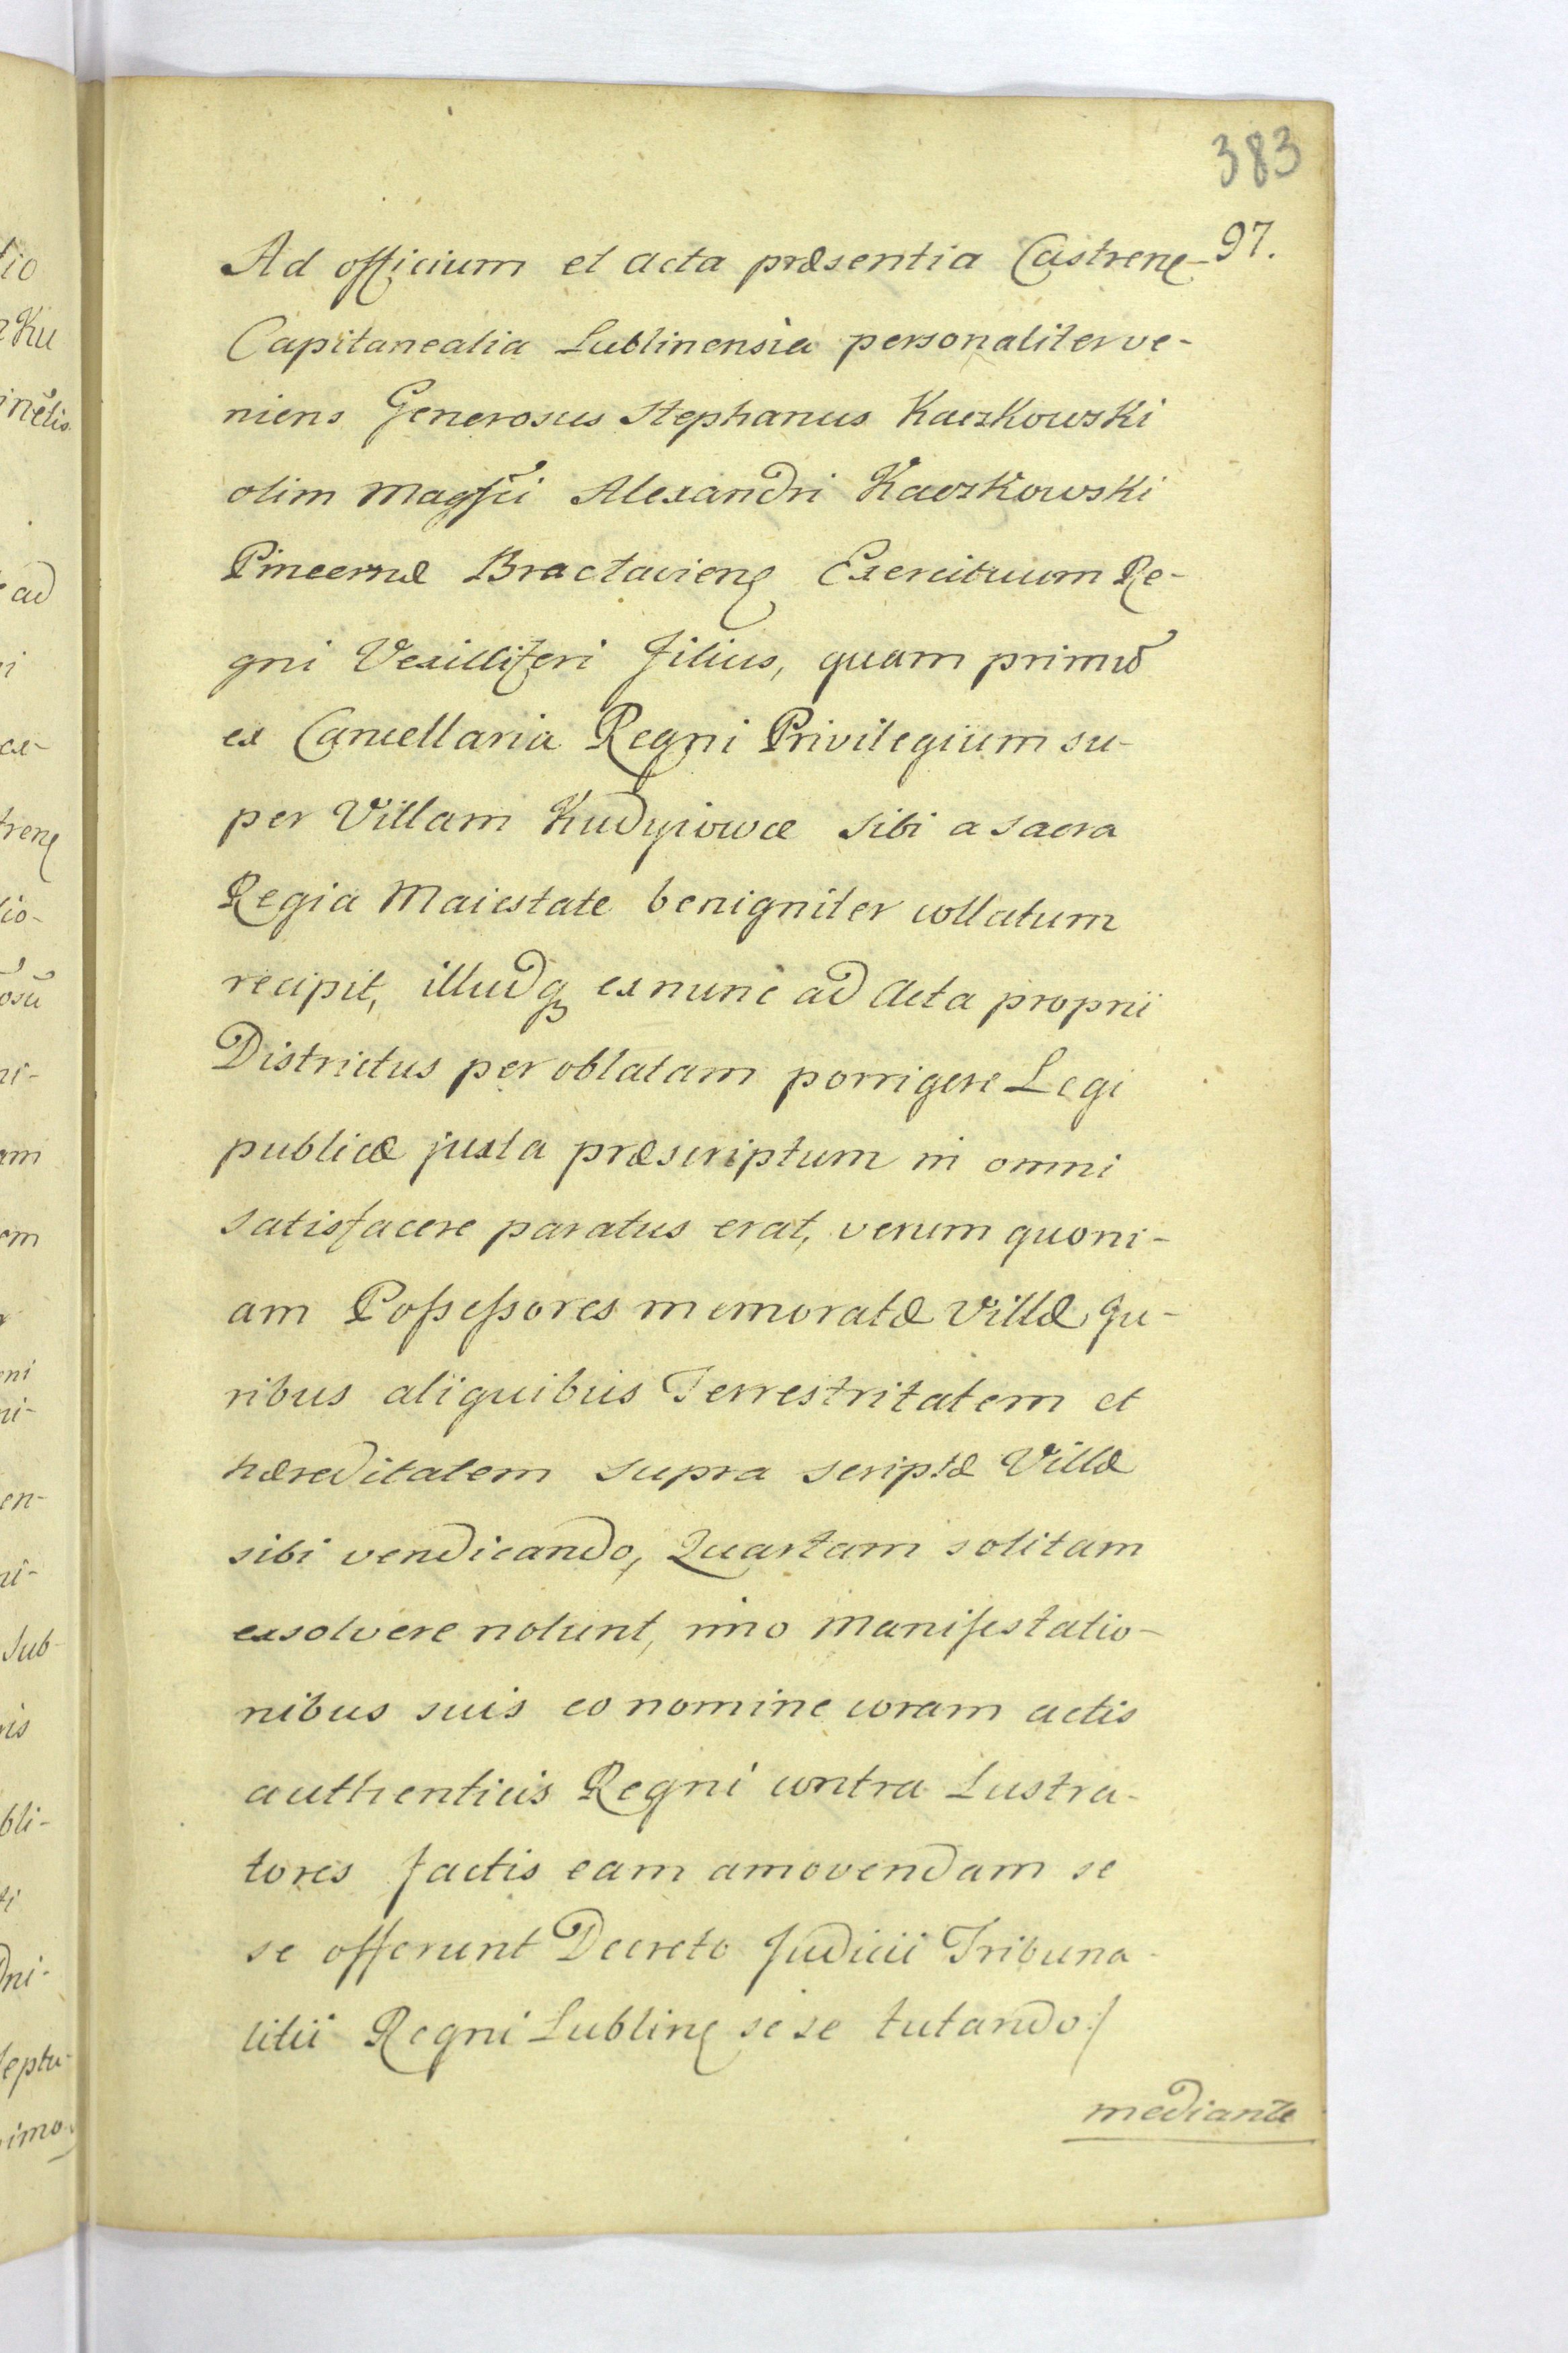 383
97.
Ad officium et acta præsentia Castrenẽ
Capitanealia Lublinensia personaliter ve-
niens Generosus Stephanus Kaczkowski
olim Magfci Alexandri Kaczkowski
Pincernæ Bractavienẽ Exercituum Re-
gni Vexilliferi filius, quam primũ
ex Cancellaria Regni Privilegium su-
per Villam Kudyiowce sibi a sacra
Regia Maiestate benigniter collatum
recipit, illudq3 ex nunc ad Acta proprii
Districtus per oblatam porrigere Legi
publicæ juxta præscriptum in omni
satisfacere paratus erat, verum quoni-
am Poſseſsores memoratæ Villæ Ju-
ribus aliquibus Terrestritatem et
hæreditatem supra scriptæ Villæ
sibi vendicando, Quartam solitam
exsolvere nolunt, imo Manifestatio-
nibus suis eo nomine coram actis
authenticis Regni contra Lustra-
tores factis eam amovendam se
se offerunt Decreto Judicii Tribuna-
litii Regni Lublinẽ sese tutando:/
mediante